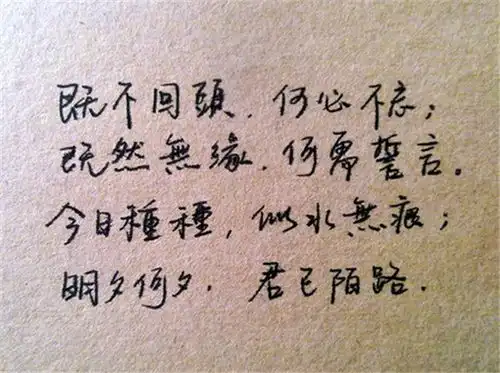 既不回頭,何必不忘;
既然無緣,何需誓言。
今日種種,似水無痕;
明夕何夕,君已陌路.